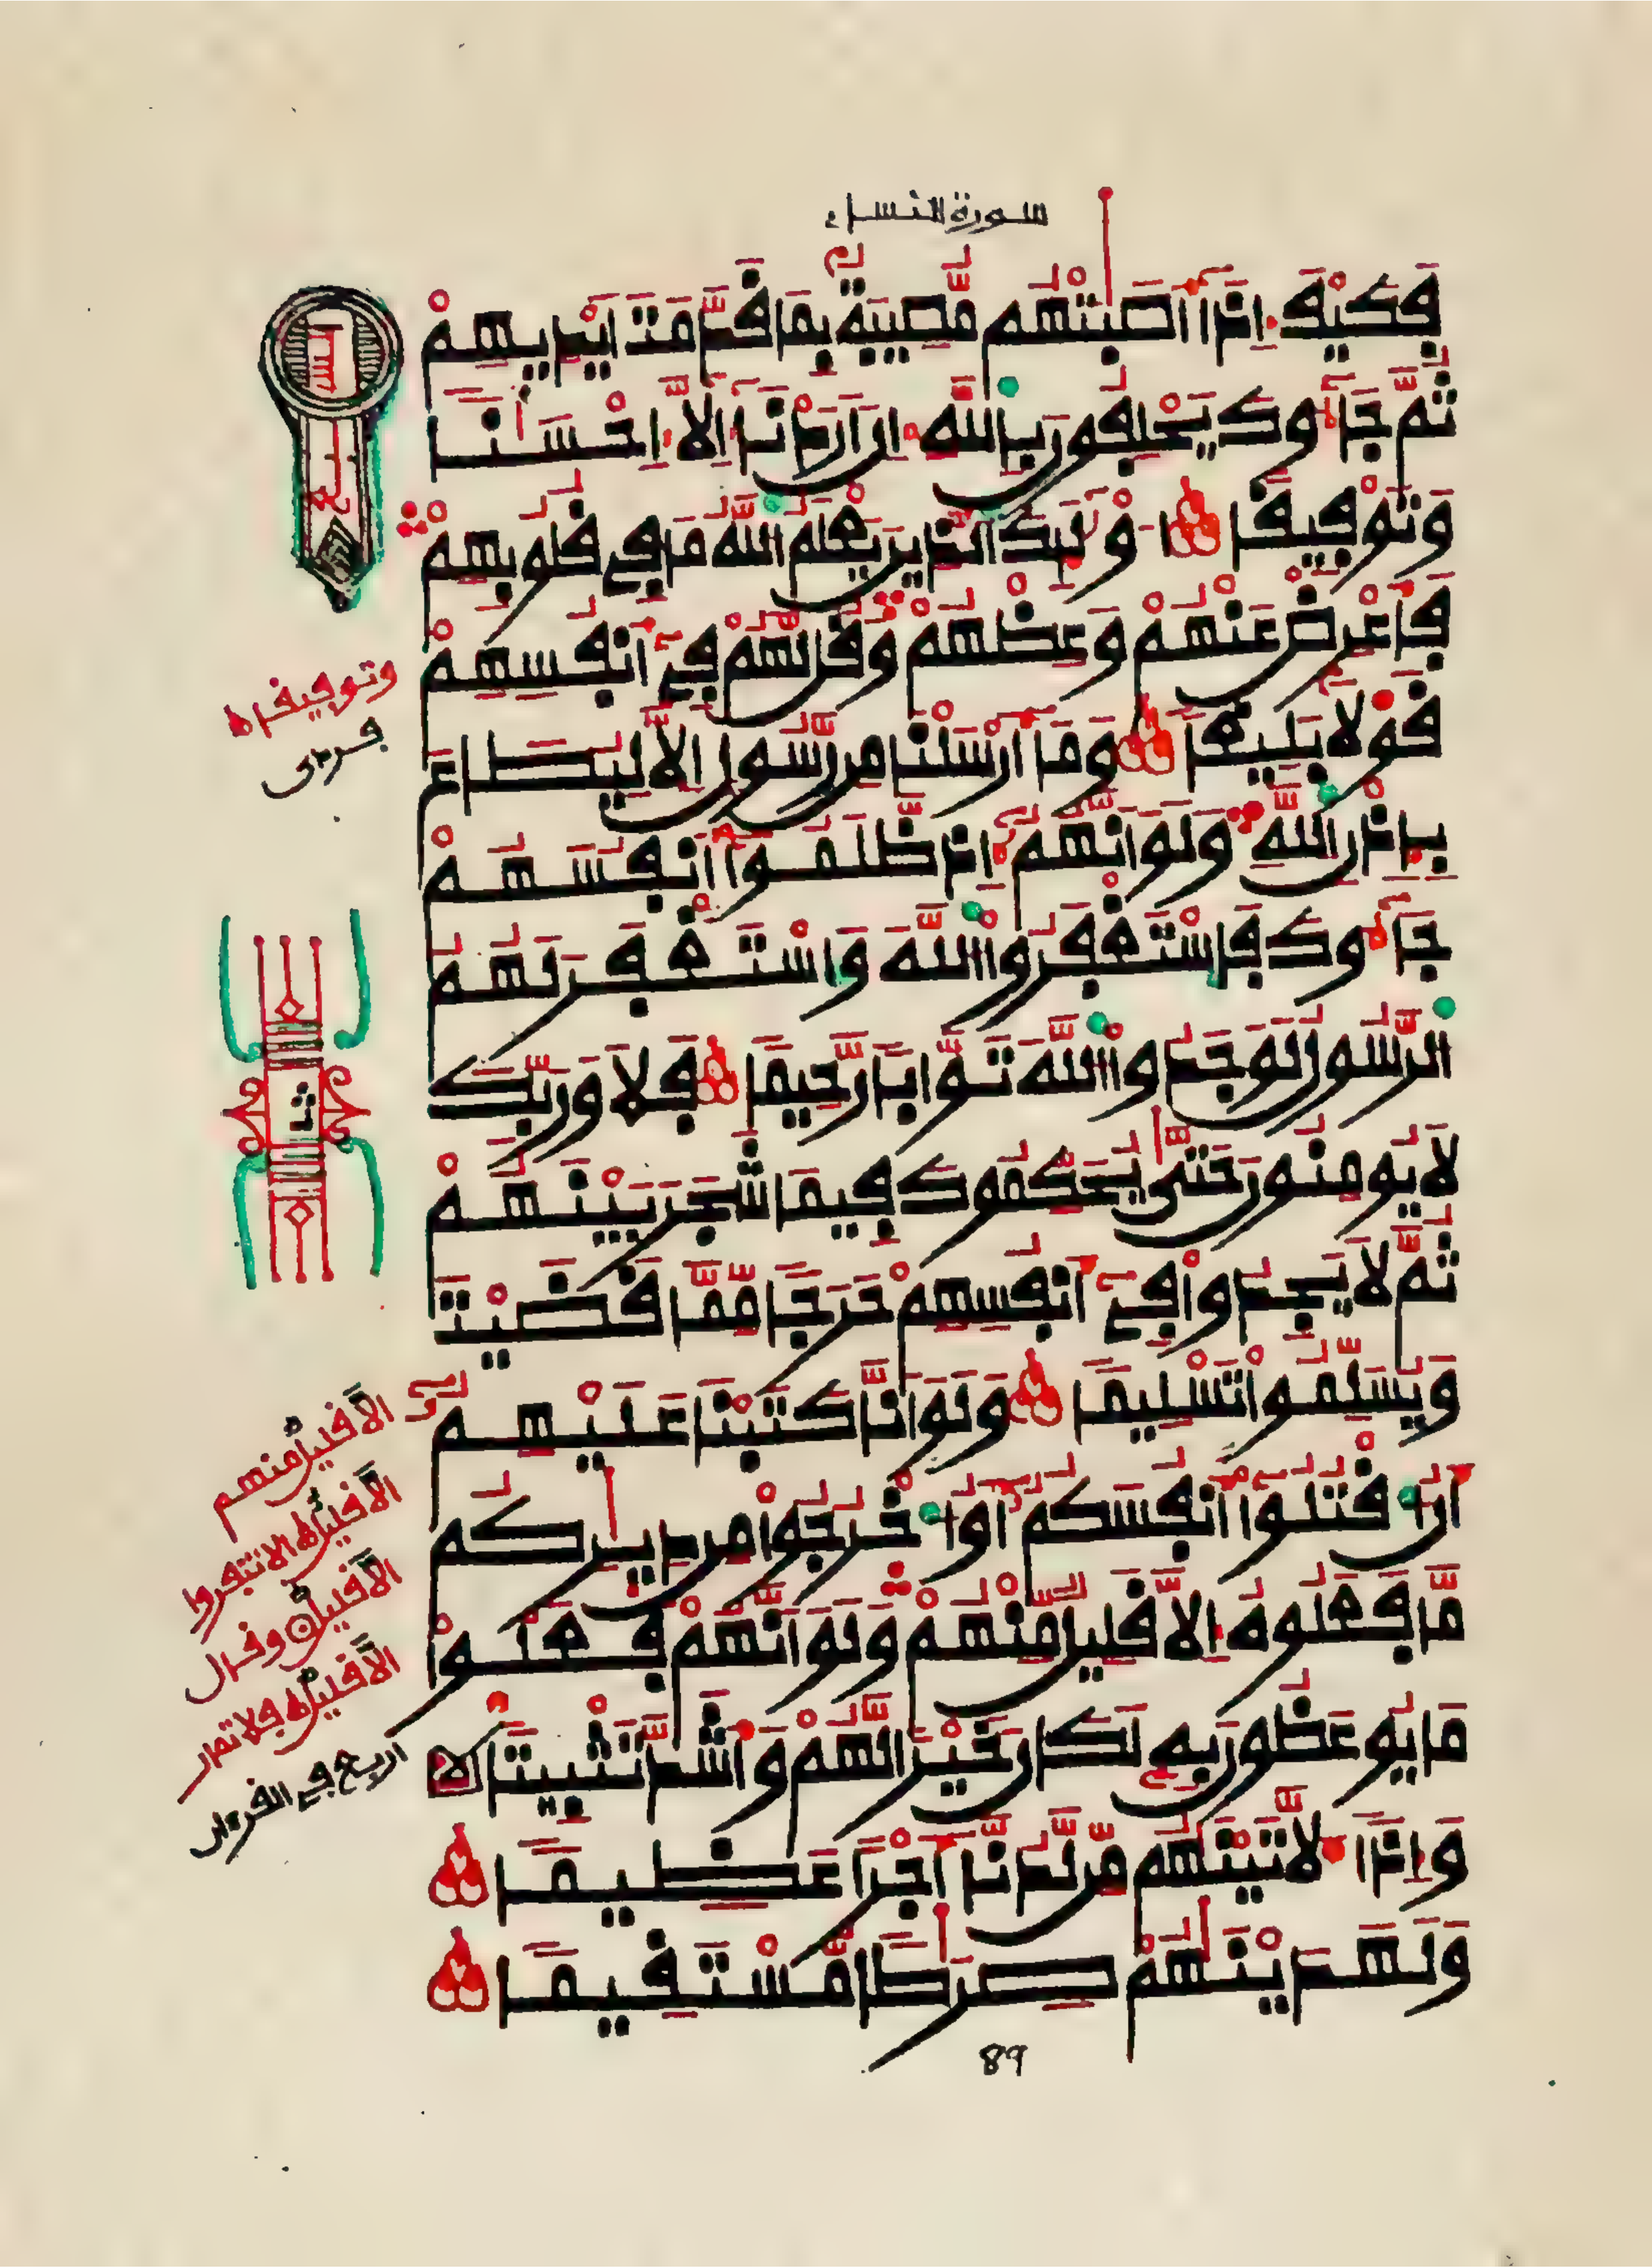 سورة النساء
فَكَيْفَ إِذَآ أَصَٰبَتْهُم مُّصِيبَةٌۢ بِمَا قَدَّمَتَ اَيْدِيهِمْ
ثُمَّ جَآءُوكَ يَحْلِفُونَ بِاللَّهِ إِنَ اَرَدْنَآ إِلَّآ إِحْسَٰنًا
وَتَوْفِيقًا أُوْلَٰٓئِكَ الَّذِينَ يَعْلَمُ اللَّهُ مَا فِي قُلُوبِهِمْ
فَأَعْرِضْ عَنْهُمْ وَعِظْهُمْ وَقُل لَّهُمْ فِيٓ أَنفُسِهِمْ
قَوْلًا بَلِيغًا وَمَآ أَرْسَلْنَا مِن رَّسُولٍ إِلَّا لِيُطَاعَ
بِإِذْنِ اللَّهِ وَلَوَ اَنَّهُمُۥٓ إِذ ظَّلَمُوٓاْ أَنفُسَهُمْ
جَآءُوكَ فَاسْتَغْفَرُواْ اللَّهَ وَاسْتَغْفَرَ لَهُمُ
الرَّسُولُ لَوَجَدُواْ اللَّهَ تَوَّابًا رَّحِيمًا فَلَا وَرَبِّكَ
لَا يُومِنُونَ حَتَّىٰ يُحَكِّمُوكَ فِيمَا شَجَرَ بَيْنَهُمْ
ثُمَّ لَا يَجِدُواْ فِيٓ أَنفُسِهِمْ حَرَجًا مِّمَّا قَضَيْتَ
وَيُسَلِّمُواْ تَسْلِيمًا وَلَوَ اَنَّا كَتَبْنَا عَلَيْهِمُۥٓ
أَنُ اقْتُلُوٓاْ أَنفُسَكُمُۥٓ أَوُ اخْرُجُواْ مِن دِيٰرِكُم
مَّا فَعَلُوهُ إِلَّا قَلِيلٌ مِّنْهُمْ وَلَوَ اَنَّهُمْ فَعَلُواْ
مَا يُوعَظُونَ بِهِۦ لَكَانَ خَيْرًا لَّهُمْ وَأَشَدَّ تَثْبِيتًا
وَإِذًا لَّأَتَيْنَٰهُم مِّن لَّدُنَّآ أَجْرًا عَظِيمًا
وَلَهَدَيْنَٰهُمْ صِرَٰطًا مُّسْتَقِيمًا
وتوفيقا
فردى
ثمن
الا قليل منهم
الا قليلا الا تنفروا
الا قليلا وقال
الا قليلا فلا تمار
اربع في القرءان
89